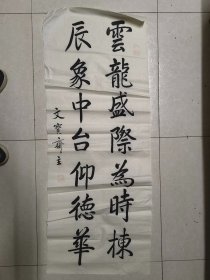 雲龍盛際為時棟
辰象中台仰德華
文寶齋主